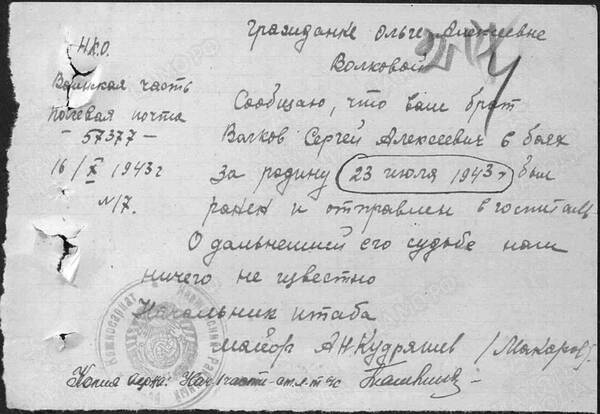 Гражданке Ольге Алексеевне
Волковой
Н.К.О.
Воинская часть
полевая почта
- 57377 -
16/X 1943 г
№17.
Сообщаю, что ваш брат
Волков Сергей Алексеевич в боях
за родину 23 июля 1943 г был
ранен и отправлен в госпиталь
О дальнейшей его судьбе нам
ничего не известно
Начальник штаба
майор Кудряшев /Макаров/
Копия верна: Нач 1 части
Комиссариат